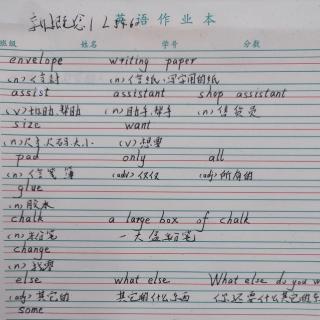 新概念1 L 英语作业本
班级 姓名 学号 分数
envelope writing paper
(n)信封 (n)信纸,写字用的纸
assist assistant shop assistant
(v)协助,帮助 (n)助手,帮手 (n)售货员
size want
(n)尺寸,尺码,大小 (v)想要
pad only all
(n)信笺簿 (adv)仅仅 (adj)所有的
glue
(n)胶水
chalk a large box of chalk
(n)粉笔 一大盒粉笔
change
(n)找零
else what else What else do you w
(adj)其它的 其它的什么东西 你还要什么其它的东
some